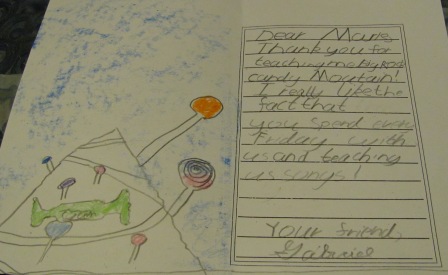 Dear Marie,
Thank you for
teaching me Big Rock
candy Mountain!
I really like the
fact that
you spend every
Friday with
us and teaching
us songs!
Your friend,
Gabriel